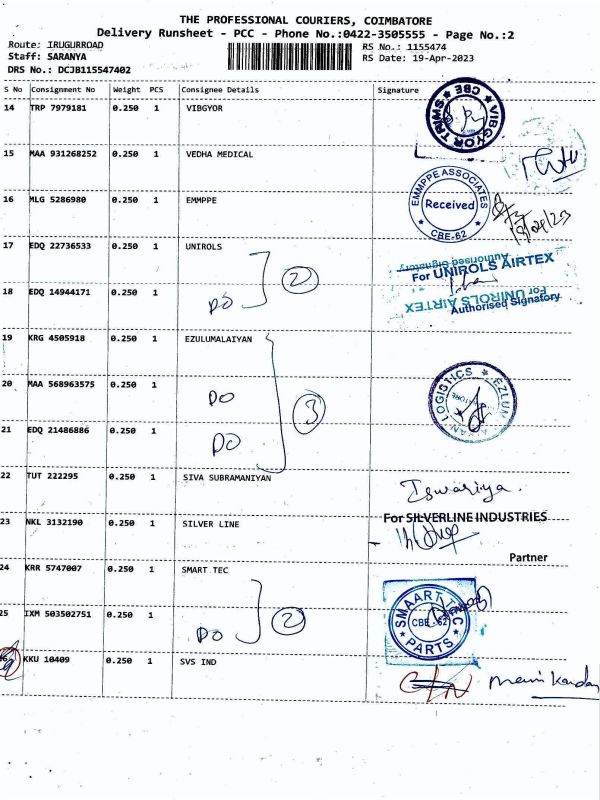 THE PROFESSIONAL COURIERS, COIMBATORE
Delivery Runsheet - PCC - Phone No.:0422-3505555 - Page No.:2
Route: IRUGURROAD
Staff: SARANYA
DRS No.: DCJB115547402
RS No.: 1155474
RS Date: 19-Apr-2023
S No Consignment No Weight PCS Consignee Details Signature
14 TRP 7979181 0.250 1 VIBGYOR
VIBGYOR TRIMS CBE
15 MAA 931268252 0.250 1 VEDHA MEDICAL
16 MLG 5286980 0.250 1 EMMPPE
EMMPPE ASSOCIATES
Received
CBE-62
17 EDQ 22736533 0.250 1 UNIROLS
2
Authorised Signatory
For UNIROLS AIRTEX
18 EDQ 14944171 0.250 1
DO
For UNIROLS AIRTEX
Authorised Signatory
19 KRG 4505918 0.250 1 EZULUMALAIYAN
20 MAA 568963575 0.250 1
DO
3
21 EDQ 21486886 0.250 1
DO
22 TUT 222295 0.250 1 SIVA SUBRAMANIYAN
Iswariya.
23 NKL 3132190 0.250 1 SILVER LINE
For SILVERLINE INDUSTRIES
Partner
24 KRR 5747007 0.250 1 SMART TEC
SMAART TEC
CBE-62
PARTS
25 IXM 503502751 0.250 1
DO
2
KKU 10409 0.250 1 SVS IND
Manikandan